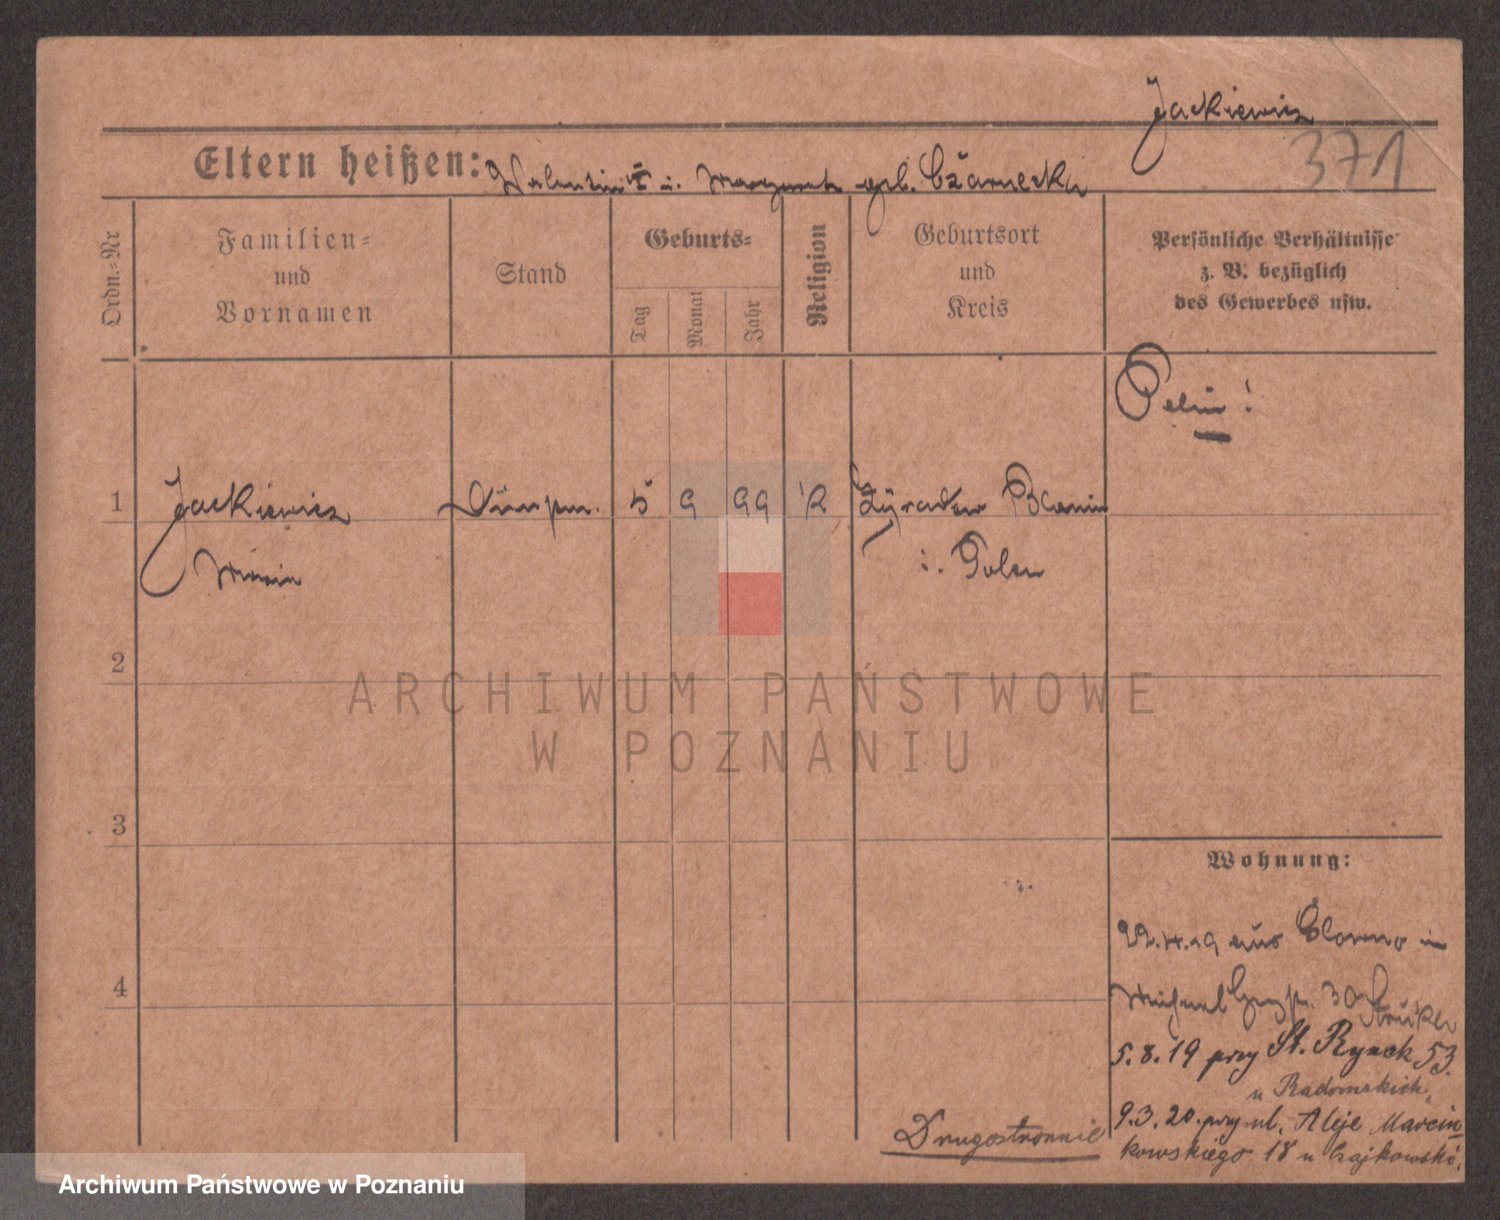 Jackiewicz
371
Eltern heißen: Valentin u. Margarete geb. Czarnecka
Ordn.-Nr
Familien-
und
Vornamen
Stand
Geburts-
Tag
Monat
Jahr
Religion
Geburtsort
und
Kreis
Persönliche Verhältnisse
z. B. bezüglich
des Gewerbes usw.
1
Jackiewicz
Maria
5
9
99
R
Zyrardow Blonin
i. Polen
2
3
4
ARCHIWUM PAŃSTWOWE
W POZNANIU
Wohnung:
22.4.19 aus in
30
5.8.19 przy St. Rynek 53
u Radomskich
9.3.20. przy ul. Aleje Marcin
kowskiego 18 u Czajkowskó.
Drugostronnie
Archiwum Państwowe w Poznaniu